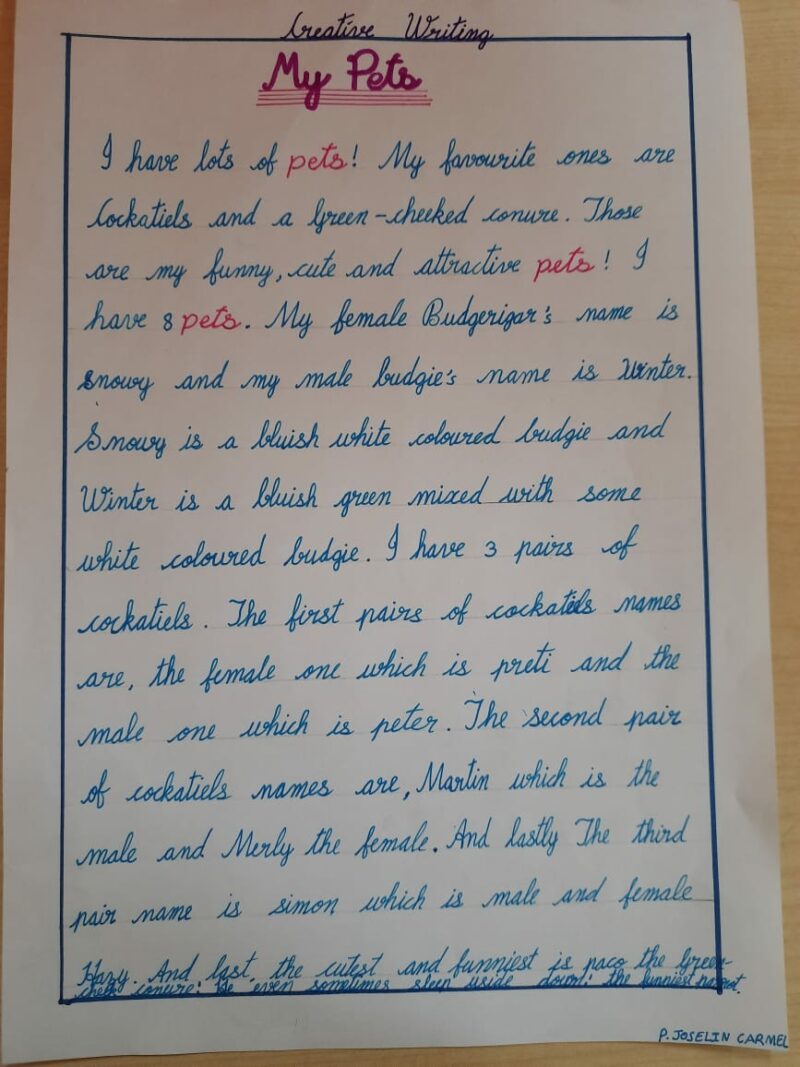 Creative Writing
My Pets
I have lots of pets! My favourite ones are
Cockatiels and a Green-cheeked conure. Those
are my funny, cute and attractive pets! I
have 8 pets. My female Budgerigar's name is
snowy and my male budgie's name is Winter.
Snowy is a bluish white coloured budgie and
Winter is a bluish green mixed with some
white coloured budgie. I have 3 pairs of
cockatiels. The first pairs of cockatiels names
are, the female one which is preti and the
male one which is peter. The second pair
of cockatiels names are, Martin which is the
male and Merly the female. And lastly The third
pair name is simon which is male and female
Hazy. And last, the cutest and funniest is paco the Green-
cheek conure: He even sometimes sleep uside down: the funniest parrot.
P. JOSELIN CARMEL